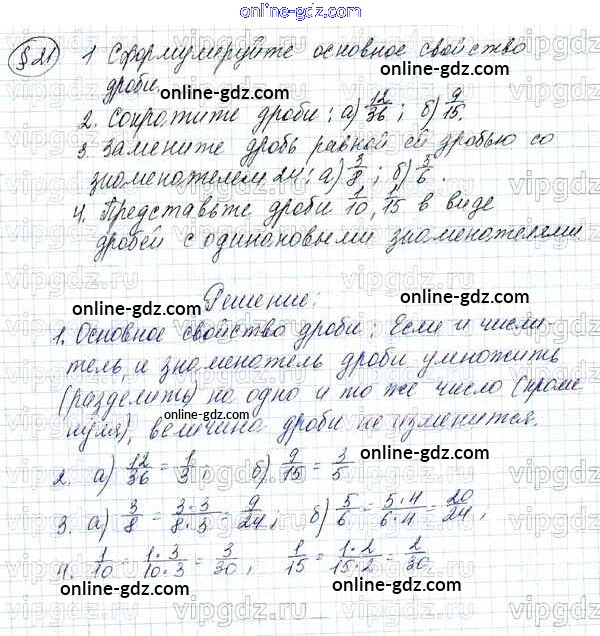 online-gdz.com
§21 1 Сформулируйте основное свойство
дроби.
2. Сократите дроби: а) 12/36; б) 9/15.
3. Замените дробь равной ей дробью со
знаменателем 24: а) 3/8; б) 5/6.
4. Представьте дроби 1/10, 1/15 в виде
дробей с одинаковыми знаменателями
online-gdz.com
Решение:
online-gdz.com
1. Основное свойство дроби: Если и числи-
тель, и знаменатель дроби умножить
(разделить) на одно и то же число (кроме
нуля), величина дроби не изменится.
online-gdz.com
2. а) 12/36 = 1/3; б) 9/15 = 3/5
online-gdz.com
3. а) 3/8 = 3·3/8·3 = 9/24; б) 5/6 = 5·4/6·4 = 20/24;
4. 1/10 = 1·3/10·3 = 3/30; 1/15 = 1·2/15·2 = 2/30.
online-gdz.com
online-gdz.com
vipgdz.ru